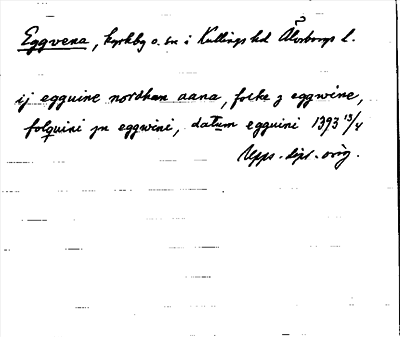 Eggvena, kyrkby o. sn i Kullings hd Älvsborgs l.
ij egguine nordhan aana, folke j eggwine,
folquini jn eggwini, datum egguini 1393 13/4
Upps. dipl. orig.